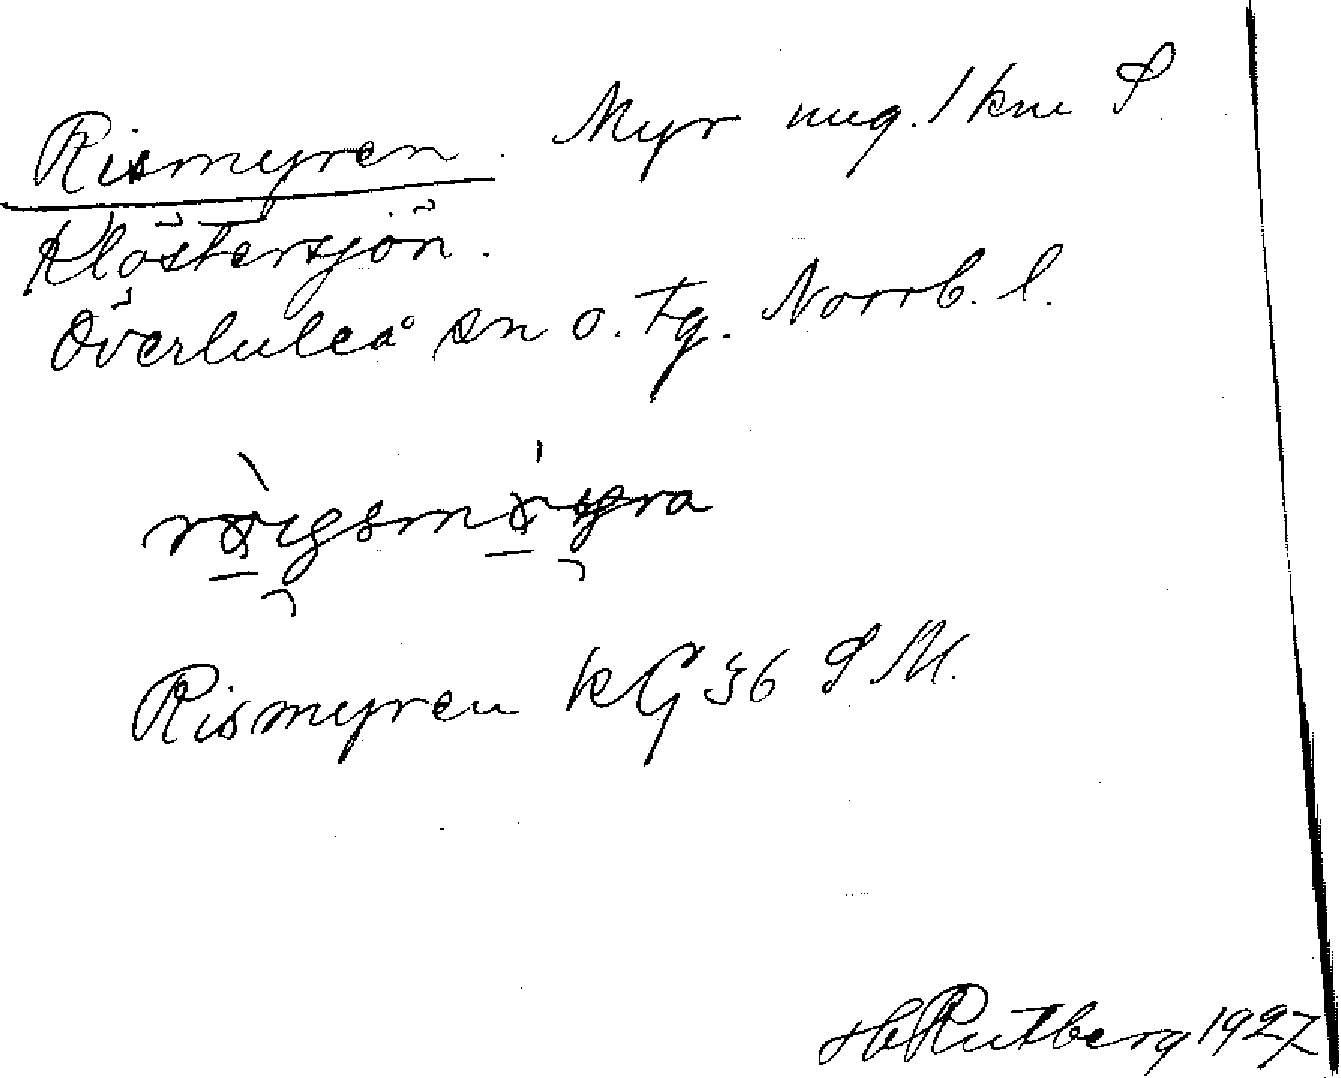 Rismyren. Myr ung. 1 km S
Klöstersjön.
Överluleå sn o. tg. Norrb. l.
Rismyren kG 36 S M.
H Rutberg 1927